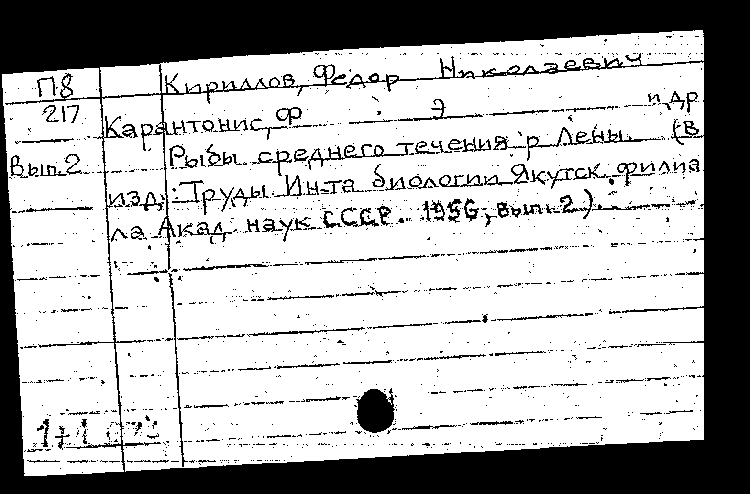 П8 Кириллов, Федор Николаевич
217 Карантонис, Ф Э и др
Вып.2 Рыбы среднего течения р Лены. (В
изд.: Труды Ин-та биологии Якутск. филиа
ла Акад. наук СССР. 1956, вып. 2).